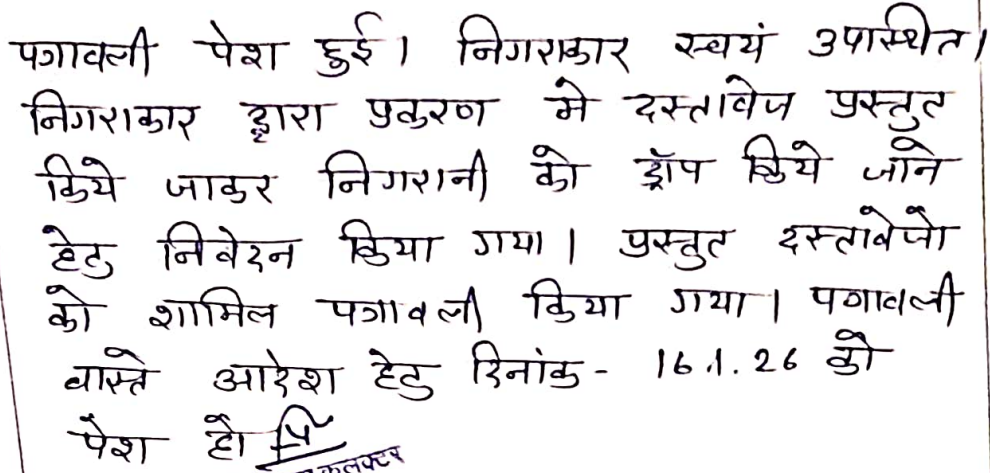 पत्रावली पेश हुई। निगराकार स्वयं उपास्थित।
निगराकार द्वारा प्रकरण मे दस्तावेज प्रस्तुत
किये जाकर निगरानी को ड्रॉप किये जाने
हेतु निवेदन किया गया। प्रस्तुत दस्तावेजो
को शामिल पत्रावली किया गया। पत्रावली
वास्ते आदेश हेतु दिनांक - 16.1.26 को
पेश हो
कलक्टर